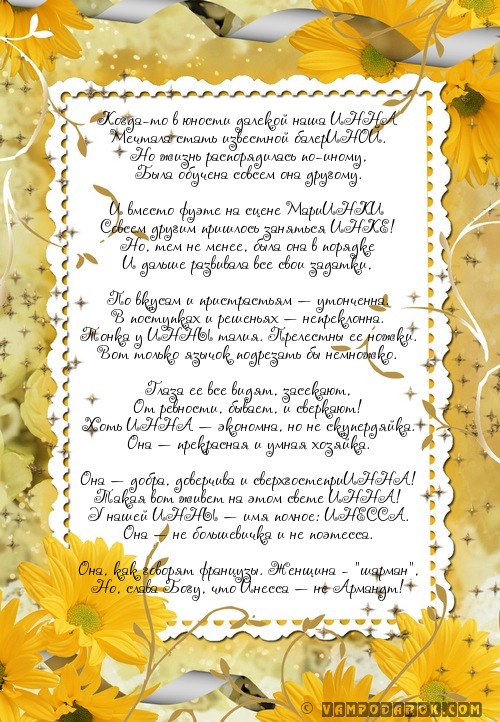 Когда-то в юности далекой наша ИННА
Мечтала стать известной балерИНОЙ.
Но жизнь распорядилась по-иному,
Была обучена совсем она другому.
И вместо фуэте на сцене МариИНКИ
Совсем другим пришлось заняться ИНКЕ!
Но, тем не менее, была она в порядке
И дальше развивала все свои задатки,
По вкусам и пристрастьям — утонченна.
В поступках и решеньях — непреклонна.
Тонка у ИННЫ талия. Прелестны ее ножки.
Вот только язычок подрезать бы немножко.
Глаза ее все видят, засекают,
От ревности, бывает, и сверкают!
Хоть ИННА — экономна, но не скупердяйка.
Она — прекрасная и умная хозяйка.
Она — добра, доверчива и сверхгостеприИННА!
Такая вот живет на этом свете ИННА!
У нашей ИННЫ — имя полное: ИНЕССА.
Она — не большевичка и не поэтесса.
Она, как говорят французы. Женщина - "шарман",
Но, слава Богу, что Инесса — не Арманд!
© VAMPODAROK.COM